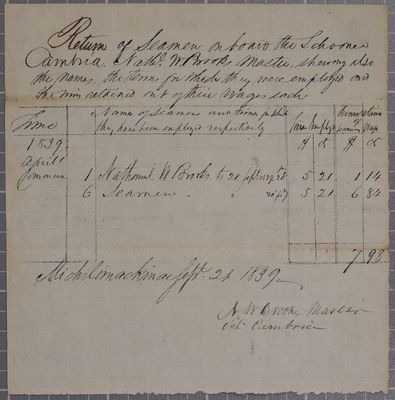 Return of Seamen on board the Schooner
Cambria. Nathl. W Brooks Master, shewing also
the names, the terms for which they were employed and
the sums retained out of their wages each
Time
Names of Seamen and terms for which
they have been employed respectively
Time Employed
1839
$ cts
April
Commen
1 Nathaniel W Brooks to 21 Sept 5 21 1 14
6 Seamen 5 21 6 84
7 98
Michilimackinac Sept. 21 1839
N W Brooks Master
Cambria